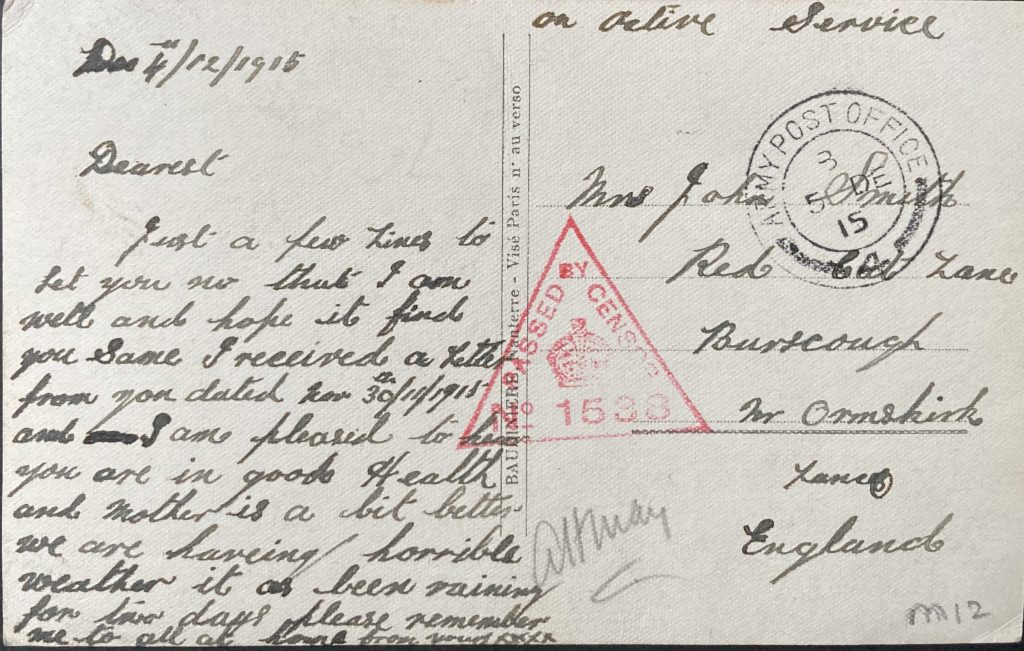 4th/12/1915
Dearest
Just a few lines to
let you no that I am
well and hope it find
you Same I received a letter
from you dated nov 30th/11/1915
and I am pleased to hear
you are in good Health
and Mother is a bit better
we are haveing horrible
weather it as been raining
for two days please remember
me to all at home from yours xxxx
BAUDINIERE Nanterre - Visé Paris n° au verso
on Active Service
ARMY POST OFFICE
3
5 DE
15
A
Mrs John Smith
Red Cat Lane
Burscough
Nr Ormskirk
Lancs
England
PASSED BY CENSOR
No 1538
M12